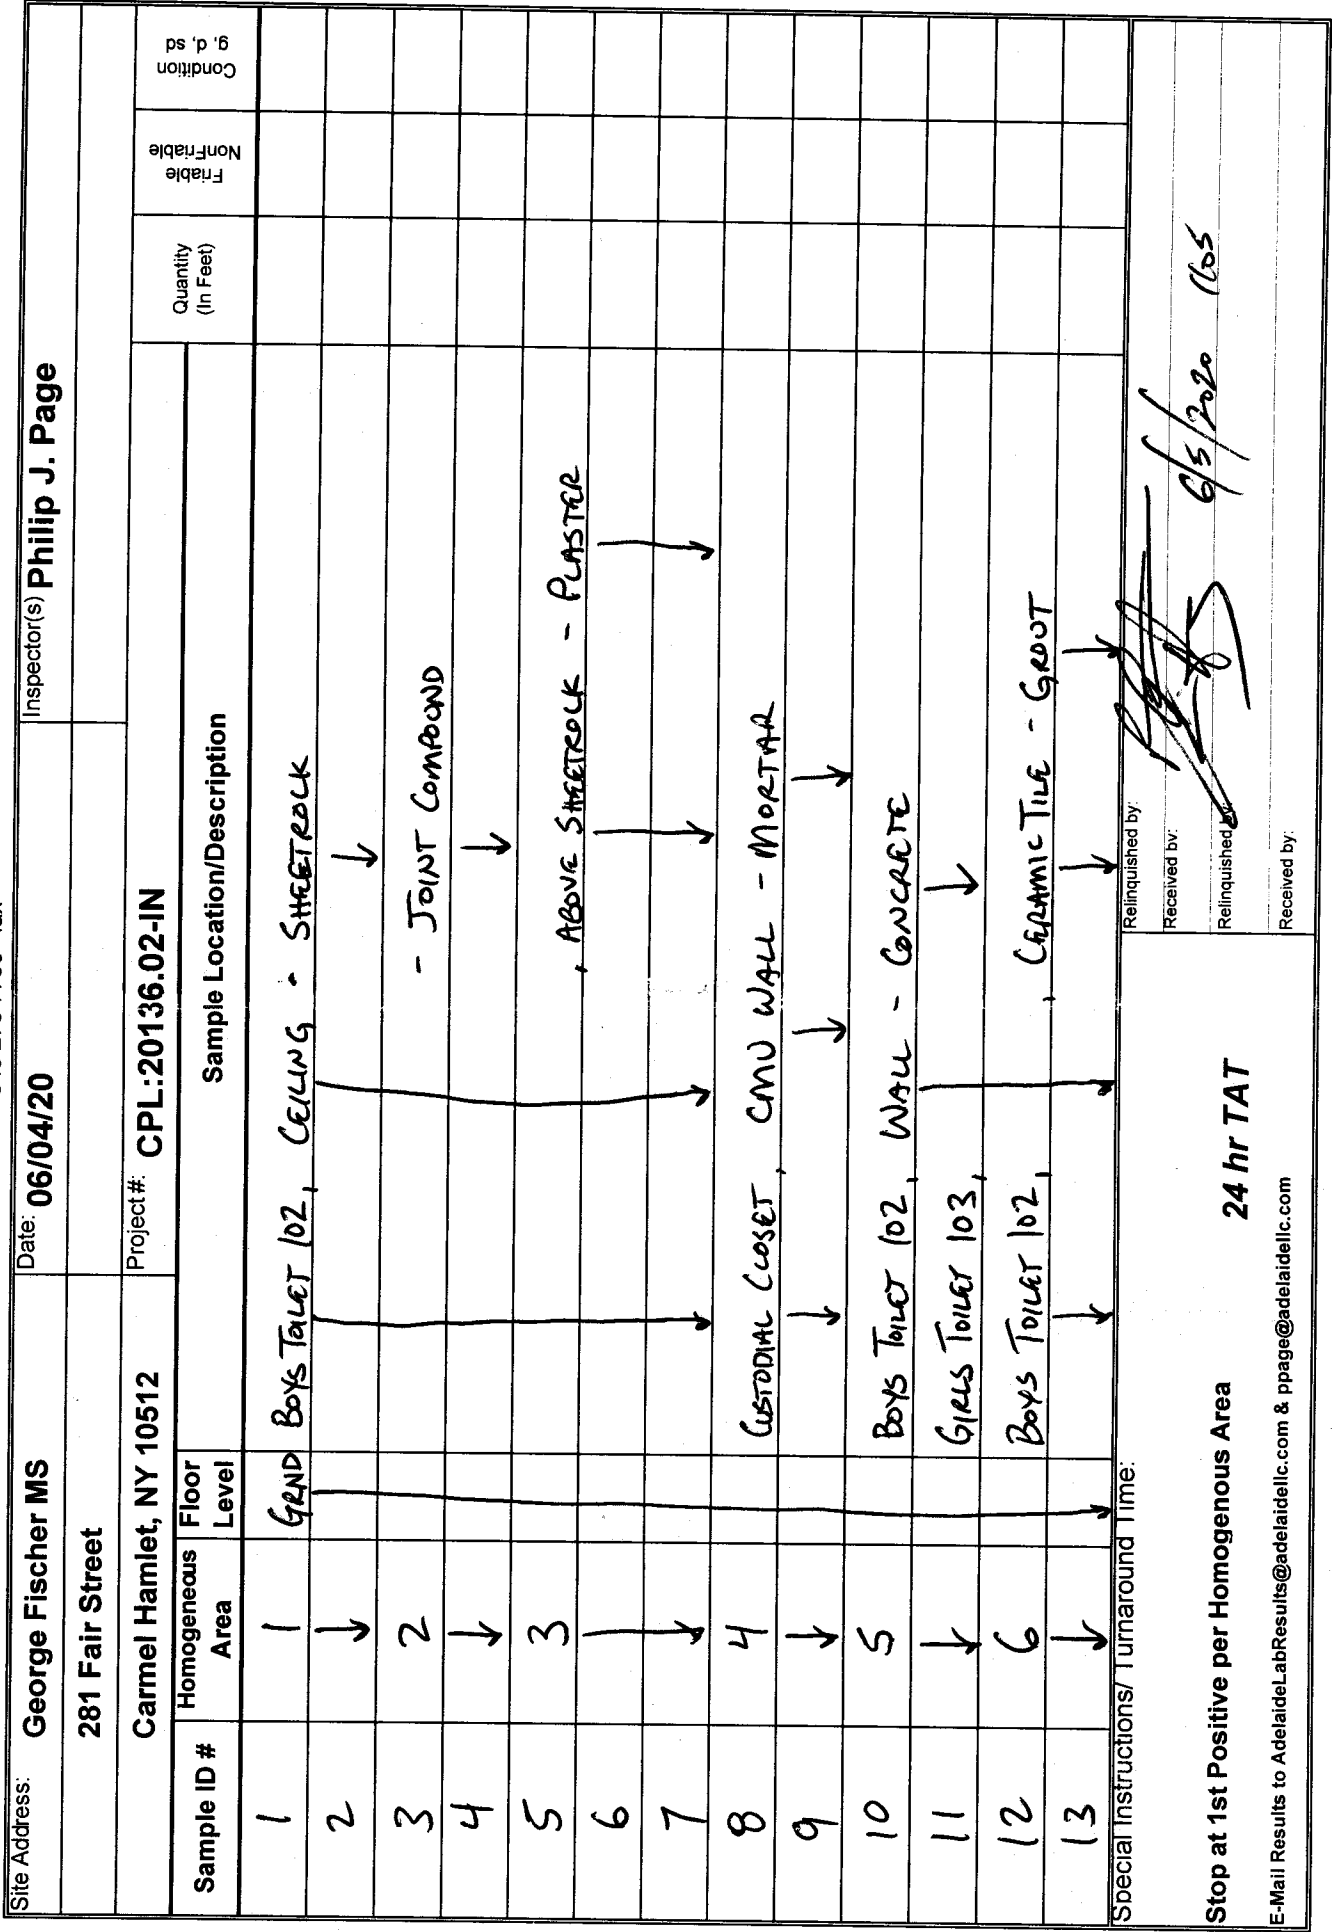 Site Address: George Fischer MS Date: 06/04/20 Inspector(s) Philip J. Page
281 Fair Street
Carmel Hamlet, NY 10512 Project #: CPL:20136.02-IN
Sample ID # Homogeneous Area Floor Level Sample Location/Description Quantity (In Feet) Friable NonFriable Condition g, d, sd
1 1 GRND BOYS TOILET 102, CEILING - SHEETROCK
2 ↓ ↓
3 2 - JOINT COMPOUND
4 ↓ ↓
5 3 , ABOVE SHEETROCK - PLASTER
6
7 ↓ ↓ ↓ ↓ ↓
8 4 CUSTODIAL CLOSET, CMU WALL - MORTAR
9 ↓ ↓ ↓ ↓
10 5 BOYS TOILET 102, WALL - CONCRETE
11 ↓ GIRLS TOILET 103, ↓
12 6 BOYS TOILET 102, , CERAMIC TILE - GROUT
13 ↓ ↓ ↓ ↓ ↓ ↓
Special Instructions/ Turnaround Time:
Stop at 1st Positive per Homogenous Area 24 hr TAT
E-Mail Results to AdelaideLabResults@adelaidellc.com & ppage@adelaidellc.com
Relinquished by:
Received by: 6/5/2020 1605
Relinquished by:
Received by: